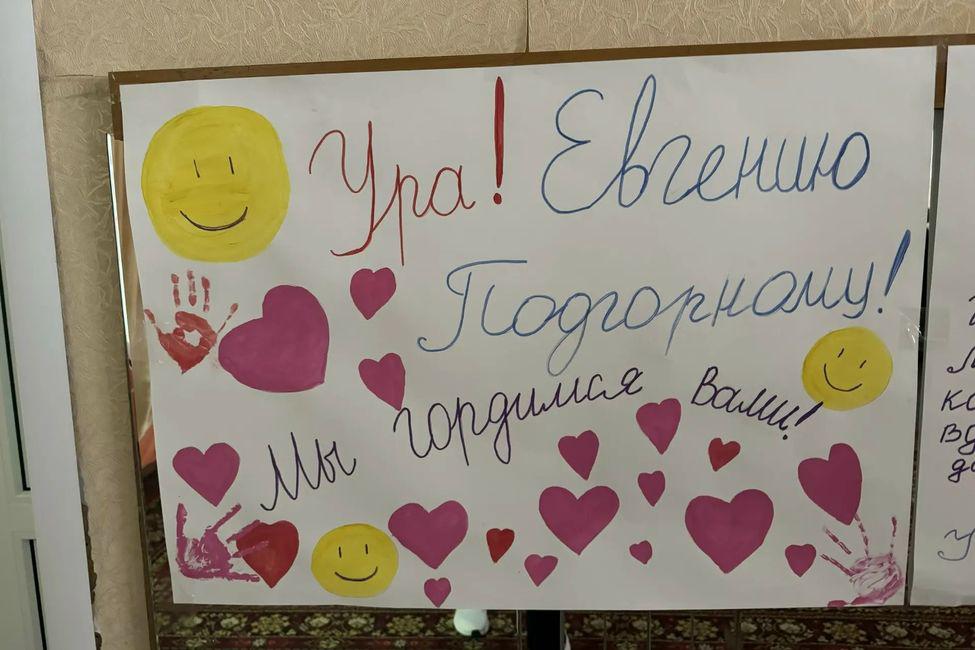 Ура! Евгению
Подгорному!
Мы гордимся Вами!